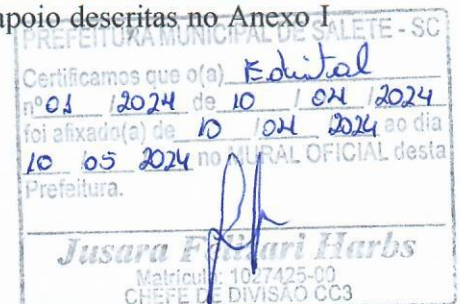 apoio descritas no Anexo I
PREFEITURA MUNICIPAL DE SALETE - SC
Certificamos que o(a) Edital
nº 01 /2024 de 10 / 04 /2024
foi afixado(a) de 10 /04 2024 ao dia
10 05 2024 no MURAL OFICIAL desta
Prefeitura.
Jusara Harbs
Matrícula 1027425-00
CHEFE DE DIVISÃO CC3